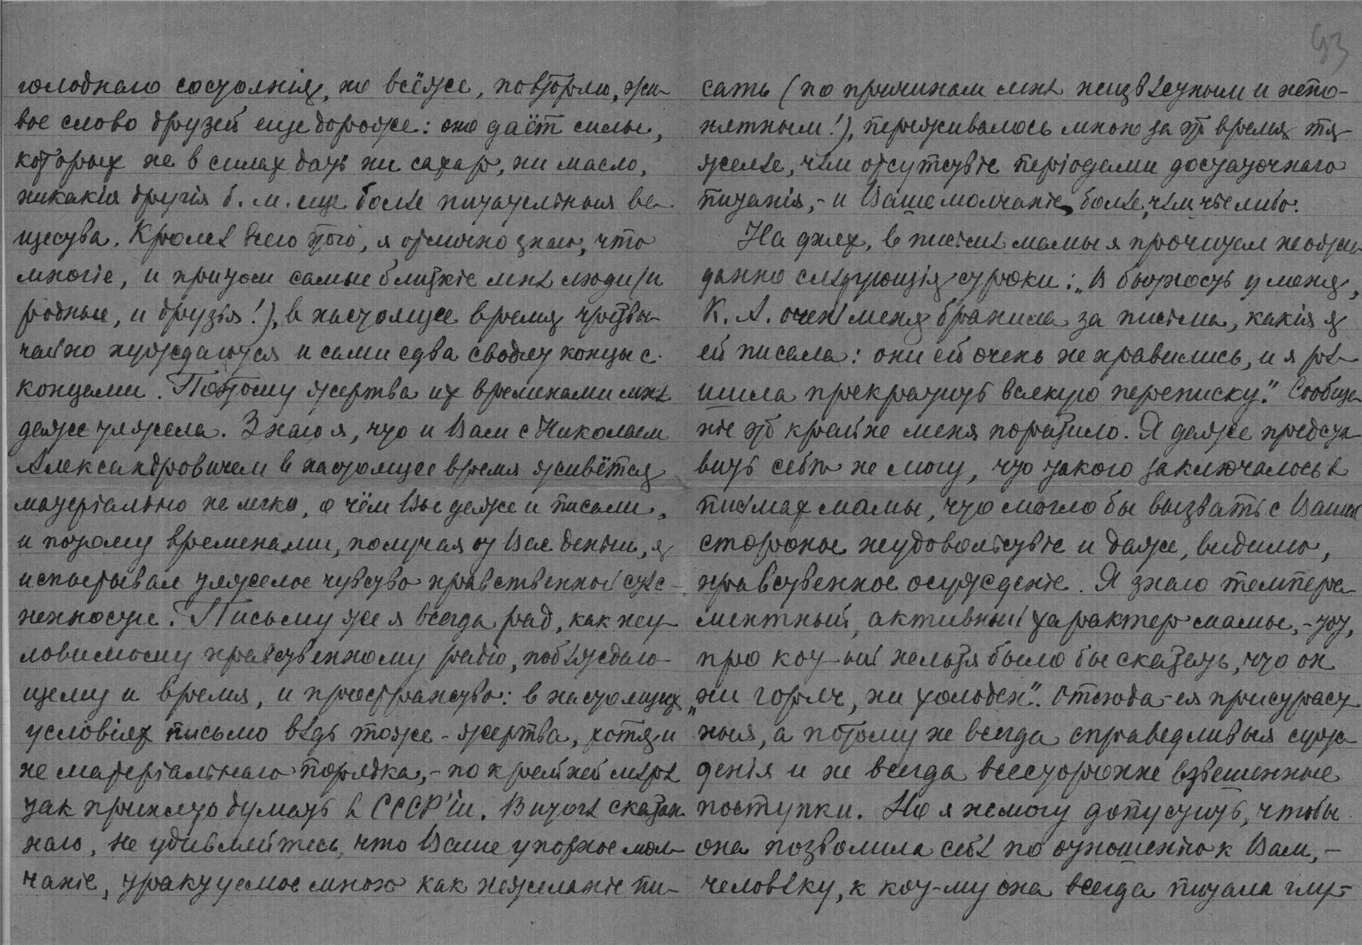 голоднаго состоянія, но всёже, повторяю, жи-
вое слово друзей еще дороже: оно даёт силы,
которых не в силах дать ни сахар, ни масло,
никакія другія б. м. еще болѣе питательныя ве-
щества. Кромѣ всего того, я отлично знаю, что
многіе, и притом самые близкіе мнѣ люди (и
родные, и друзья!), в настоящее время чрезвы-
чайно нуждаются и сами едва сводят концы с
концами. Поэтому жертва их временами мнѣ
даже тяжела. Знаю я, что и Вам с Николаем
Александровичем в настоящее время живётся
матеріально не легко, о чём Вы даже и писали,
и потому временами, получая от Вас деньги, я
испытывал тяжелое чувство нравственной стѣс-
ненности. Письму же я всегда рад, как неу-
ловимому нравственному радіо, побѣждаю-
щему и время, и пространство: в настоящих
условіях письмо вѣдь тоже - жертва, хотя и
не матеріальнаго порядка, - по крайней мѣрѣ
так принято думать в СССР'іи. В итогѣ сказан-
наго, не удивляйтесь, что Ваше упорное мол-
чаніе, трактуемое мною как нежеланіе пи-
93
сать (по причинам мнѣ неизвѣстным и непо-
нятным!), переживалось мною за это время тя-
желѣе, чѣм отсутствіе періодами достаточнаго
питанія, - и Ваше молчаніе, болѣе, чѣм чье либо.
На днях, в письмѣ мамы я прочитал неожи-
данно слѣдующія строки: „В бытность у меня,
К. А. очень меня бранила за письма, какія я
ей писала: они ей очень не нравились, и я рѣ-
шила прекратить всякую переписку". Сообще-
ніе это крайне меня поразило. Я даже предста-
вить себѣ не могу, что такого заключалось в
письмах мамы, что могло бы вызвать с Вашей
стороны неудовольствіе и даже, видимо,
нравственное осужденіе. Я знаю темпера-
ментный, активный характер мамы, - тот,
про кот-ый нельзя было бы сказать, что он
„ни горяч, ни холоден". Отсюда - ея пристраст-
ныя, а потому не всегда справедливыя суж-
денія и не всегда всесторонне взвешенные
поступки. Но я не могу допустить, чтобы
она позволила себѣ по отношенію к Вам, -
человѣку, к кот-му она всегда питала глу-